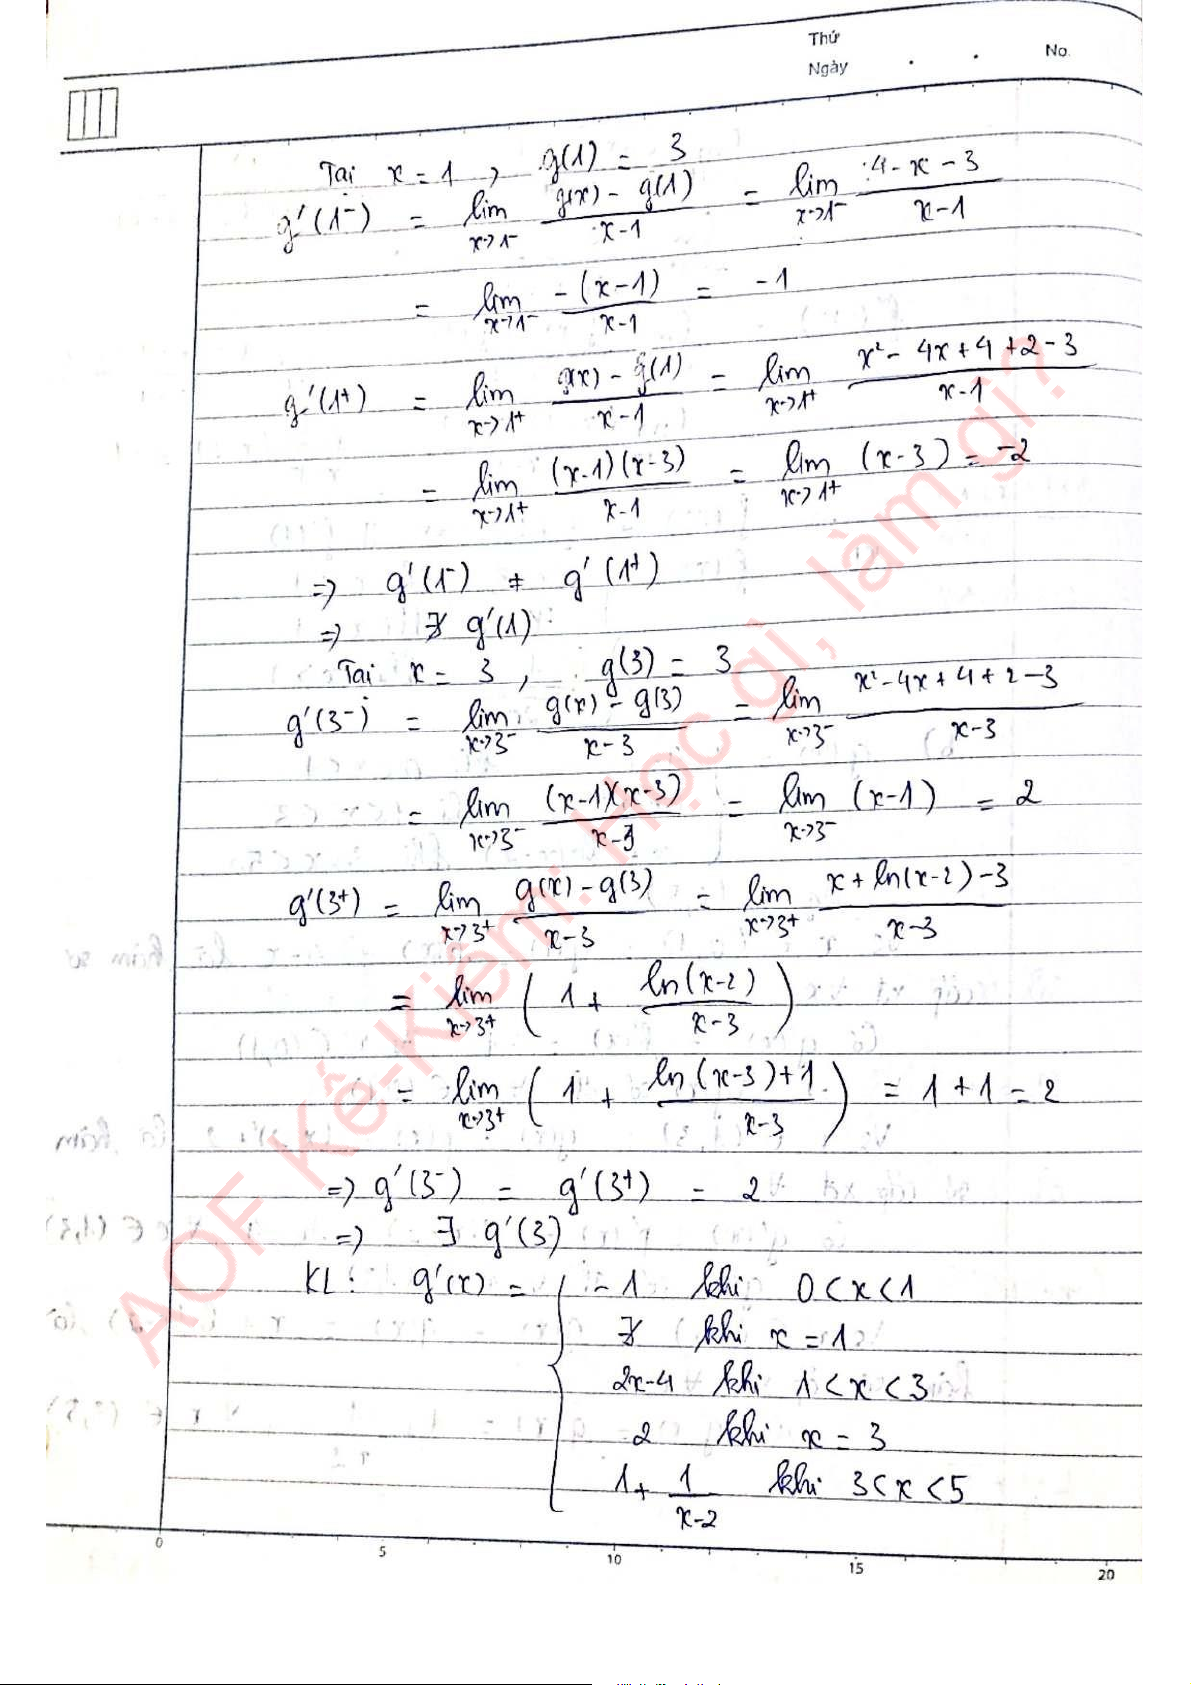 Thứ
Ngày . . No.
Tại x = 1 , g(1) = 3
g'(1⁻) = lim_{x→1⁻} (g(x) - g(1))/(x-1) = lim_{x→1⁻} (4-x-3)/(x-1)
= lim_{x→1⁻} (-(x-1))/(x-1) = -1
g'(1⁺) = lim_{x→1⁺} (g(x) - g(1))/(x-1) = lim_{x→1⁺} (x² - 4x + 4 + 2 - 3)/(x-1)
= lim_{x→1⁺} ((x-1)(x-3))/(x-1) = lim_{x→1⁺} (x-3) = -2
=> g'(1⁻) ≠ g'(1⁺)
=> ∄ g'(1)
Tại x = 3 , g(3) = 3
g'(3⁻) = lim_{x→3⁻} (g(x) - g(3))/(x-3) = lim_{x→3⁻} (x² - 4x + 4 + 2 - 3)/(x-3)
= lim_{x→3⁻} ((x-1)(x-3))/(x-3) = lim_{x→3⁻} (x-1) = 2
g'(3⁺) = lim_{x→3⁺} (g(x) - g(3))/(x-3) = lim_{x→3⁺} (x + ln(x-2) - 3)/(x-3)
= lim_{x→3⁺} (1 + ln(x-2)/(x-3))
= lim_{x→3⁺} (1 + (ln(x-3)+1)/(x-3)) = 1 + 1 = 2
=> g'(3⁻) = g'(3⁺) = 2
=> ∃ g'(3)
KL: g'(x) = { -1 khi 0 < x < 1
∄ khi x = 1
2x-4 khi 1 < x < 3
2 khi x = 3
1 + 1/(x-2) khi 3 < x < 5
0 5 10 15 20
AOF Kế-Kiểm: Học gì, làm gì?